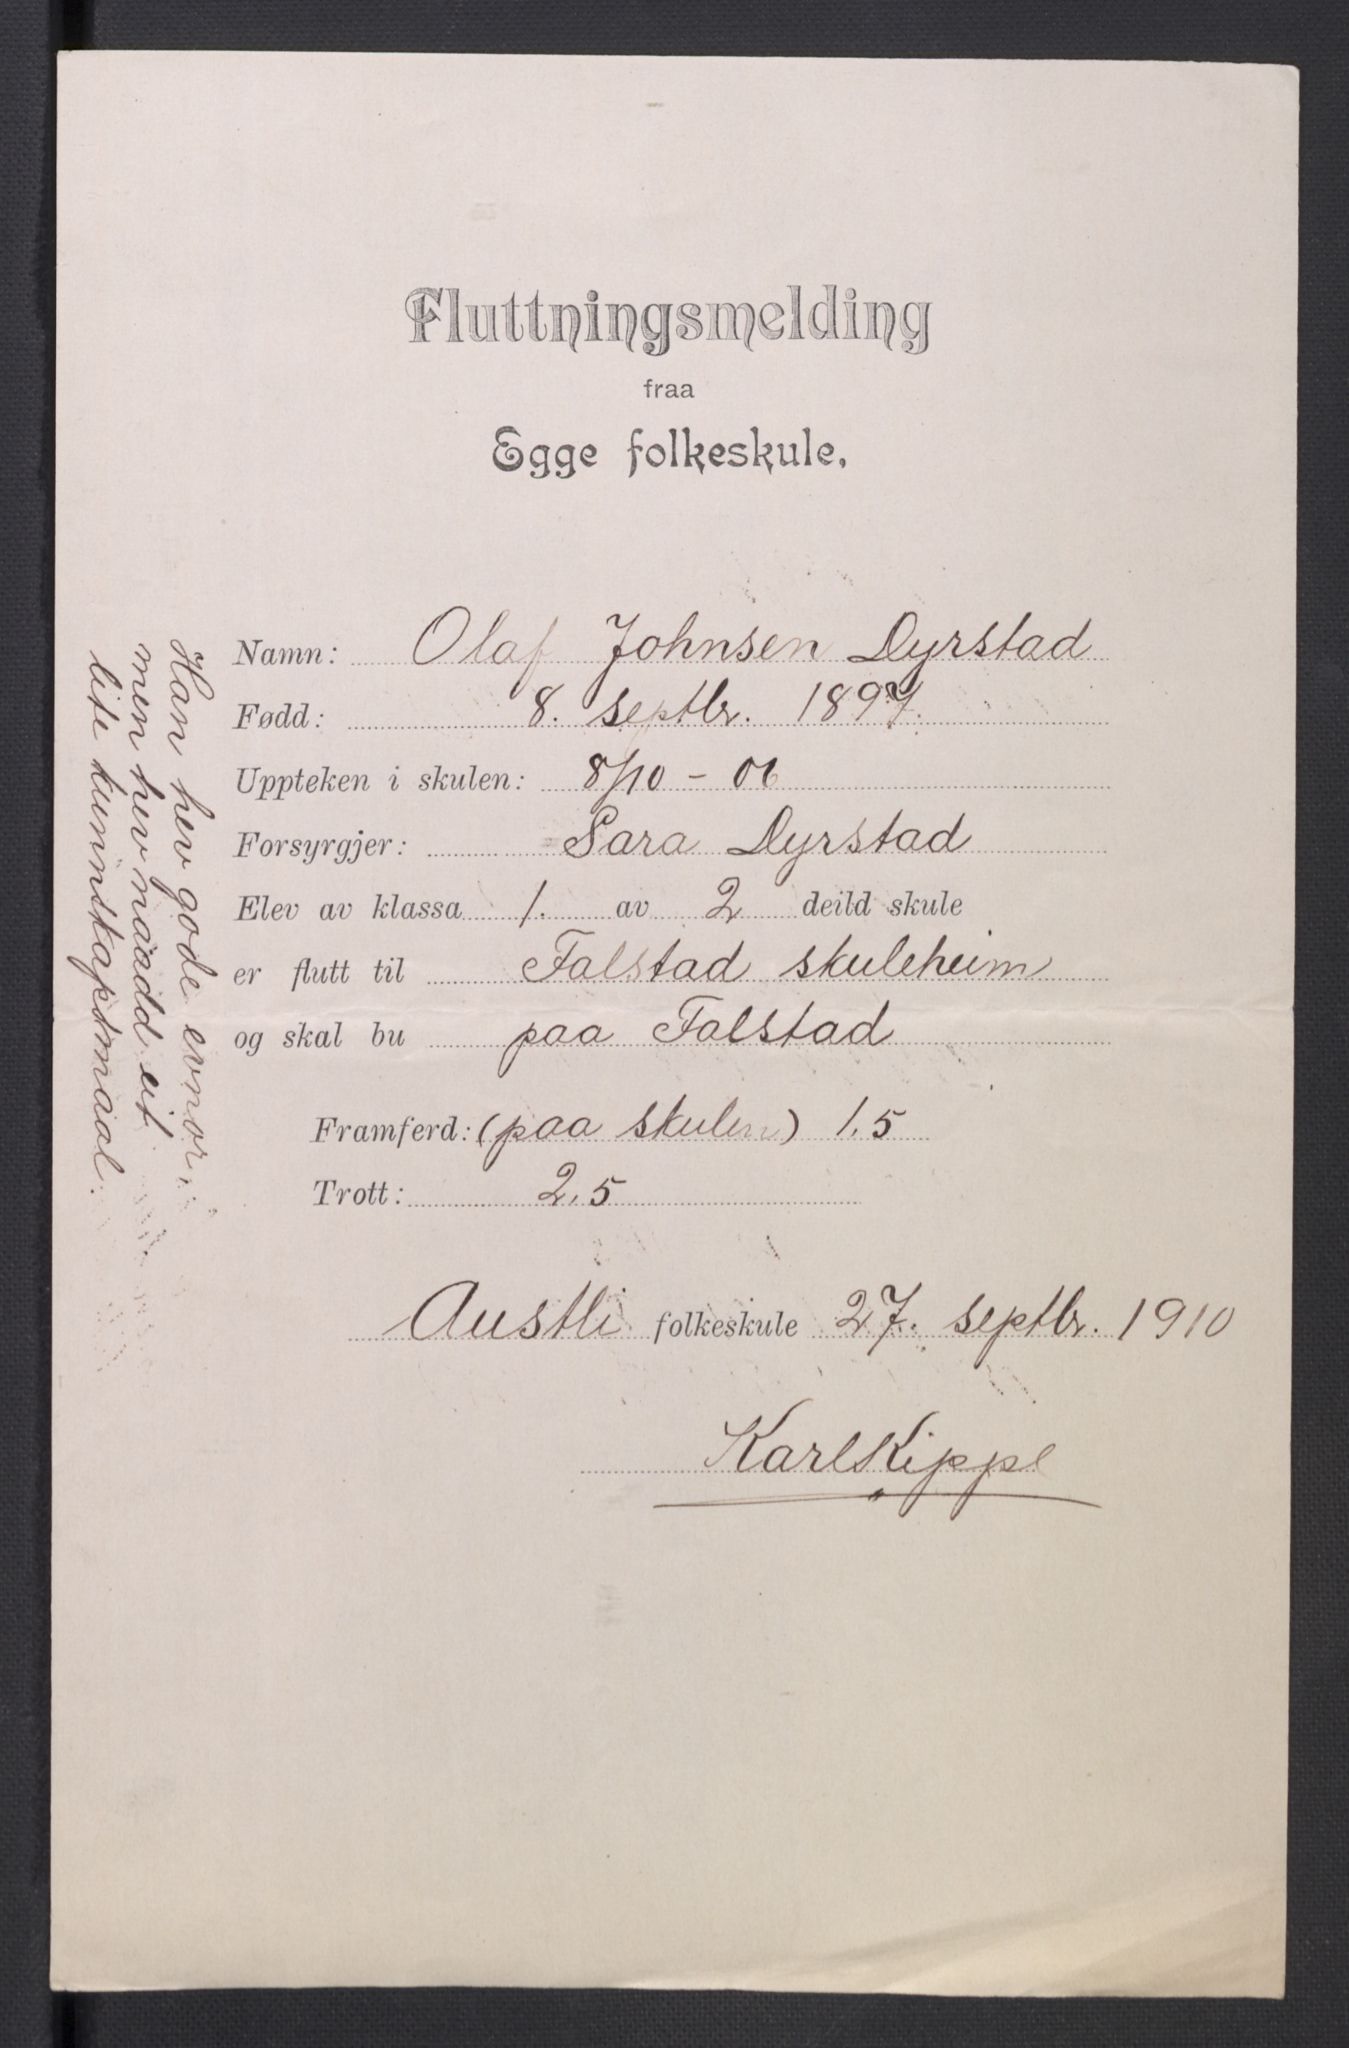 Fluttningsmelding
fraa
Egge folkeskule.
Namn: Olaf Johnsen Dyrstad
Født: 8. septbr. 1897.
Uppteken i skulen: 8/10 - 06
Forsyrgjer: Sara Dyrstad
Elev av klassa 1. av 2 deild skule
er flutt til Falstad skuleheim
og skal bu paa Falstad
Framferd: (paa skulen) 1.5
Trott: 2.5
Austli folkeskule 27. septbr. 1910
Karl Kippe
Han hev gode evnor
men hev naadd eit
lite kunnskapsmaal.